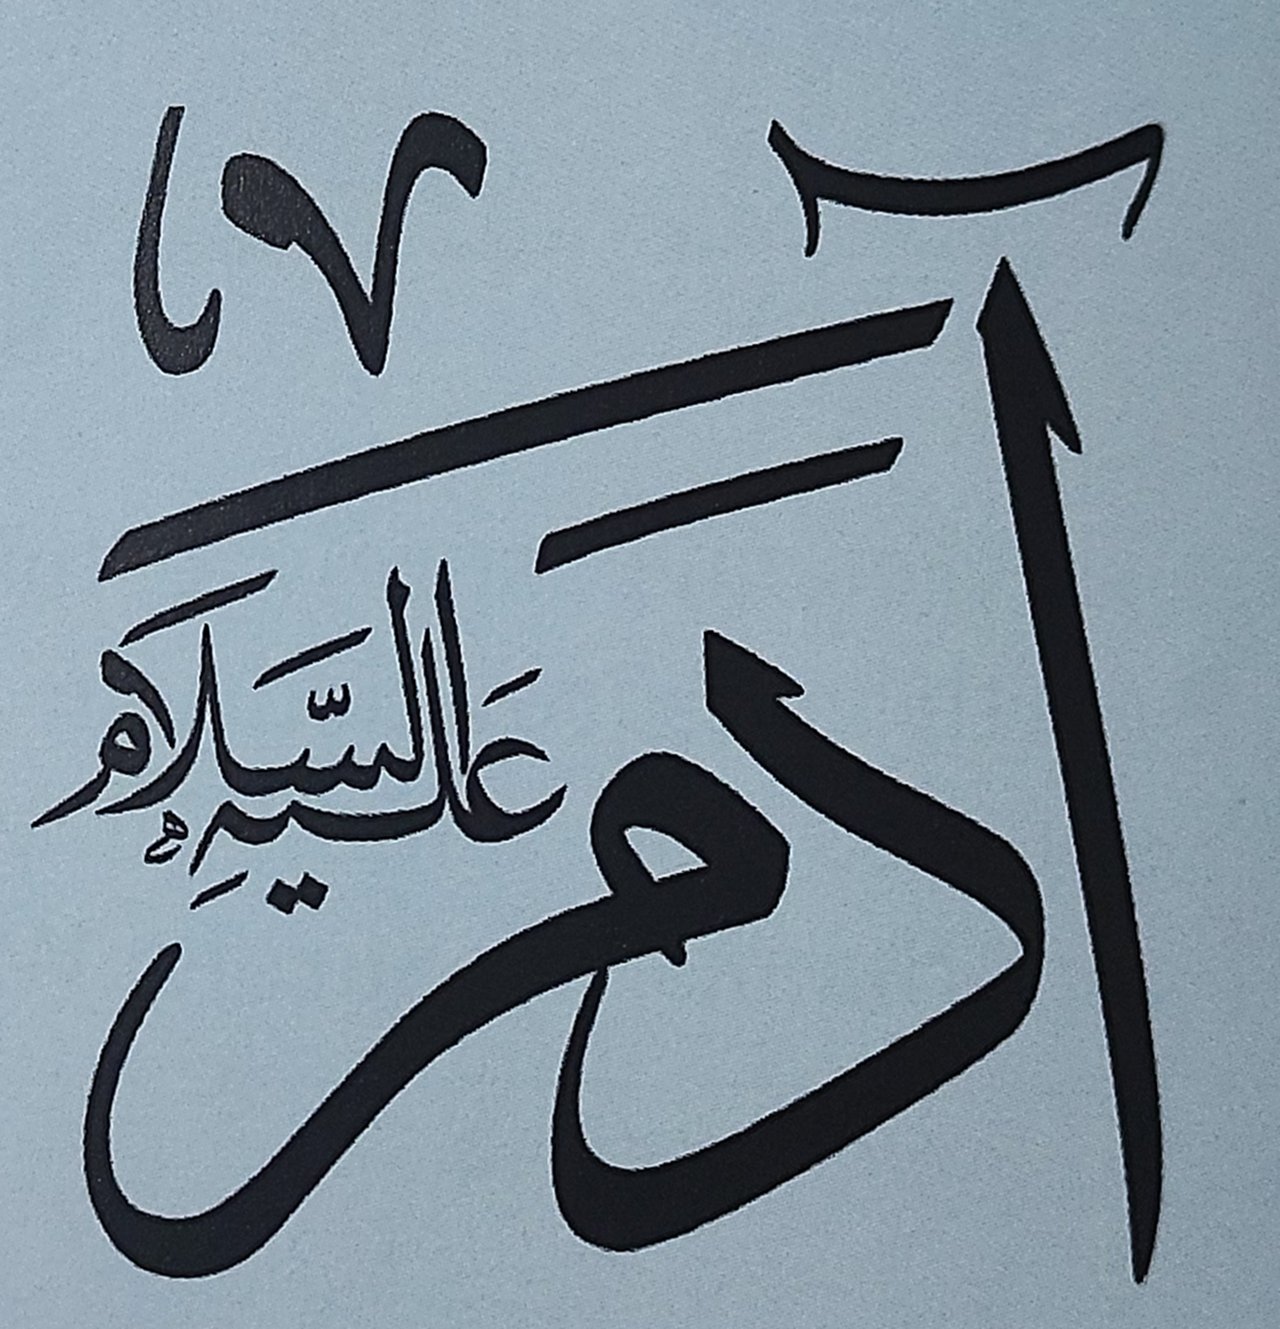 آدَمَ
عَلَيْهِ السَّلَامَ